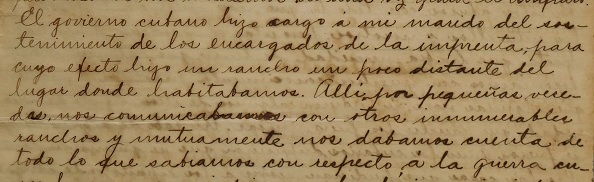 El govierno cubano hizo cargo a mi marido del sos-
tenimiento de los encargados de la imprenta, para
cuyo efecto hizo un rancho un poco distante del
lugar donde habitabamos. Alli, por pequeñas vere-
das, nos comunicabamos con otros innumerables
ranchos y mutuamente nos dábamos cuenta de
todo lo que sabiamos con respecto, á la guerra cu-